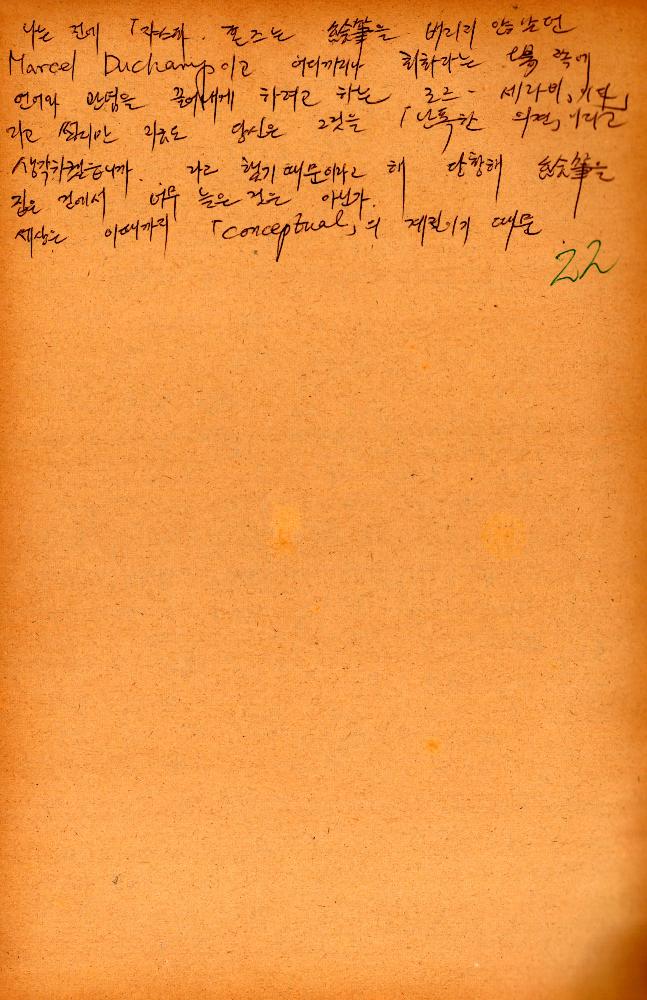 나는 전에 「쟈스파. 죤즈는 絵筆을 버리지 않았던
Marcel Duchamp이고 어디까지나 회화라는 場 속에
언어와 관념을 끌어내게 하려고 하는 로즈- 세라비,이다」
라고 썼지만 지금도 당신은 그것을 「난폭한 의견,이라고
생각하겠습니까. 라고 했기때문이라고 해 당황해 絵筆을
집은 것에서 너무 늦은 것은 아닌가.
세상은 이때까지 「conceptual」의 계절이기 때문
22